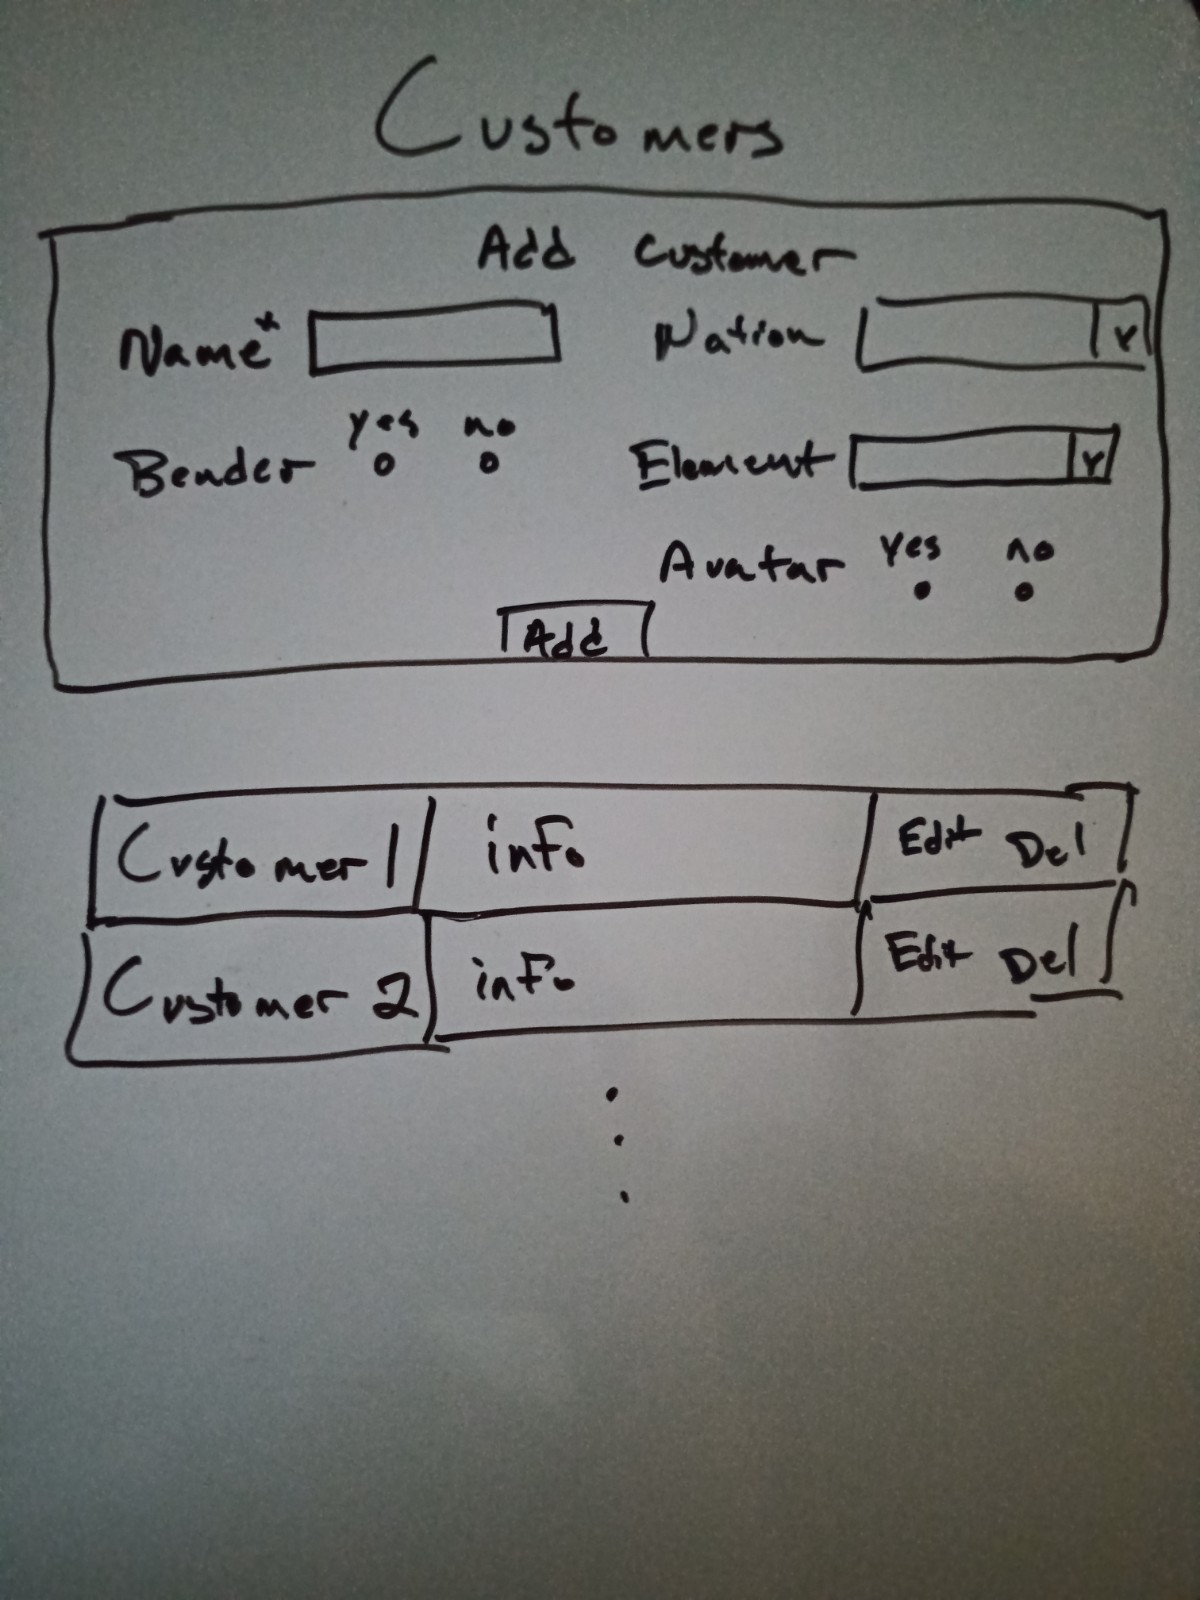 Customers
Add Customer
Name* Nation v
yes no
Bender Element v
Avatar yes no
Add
Customer 1 info Edit Del
Customer 2 info Edit Del